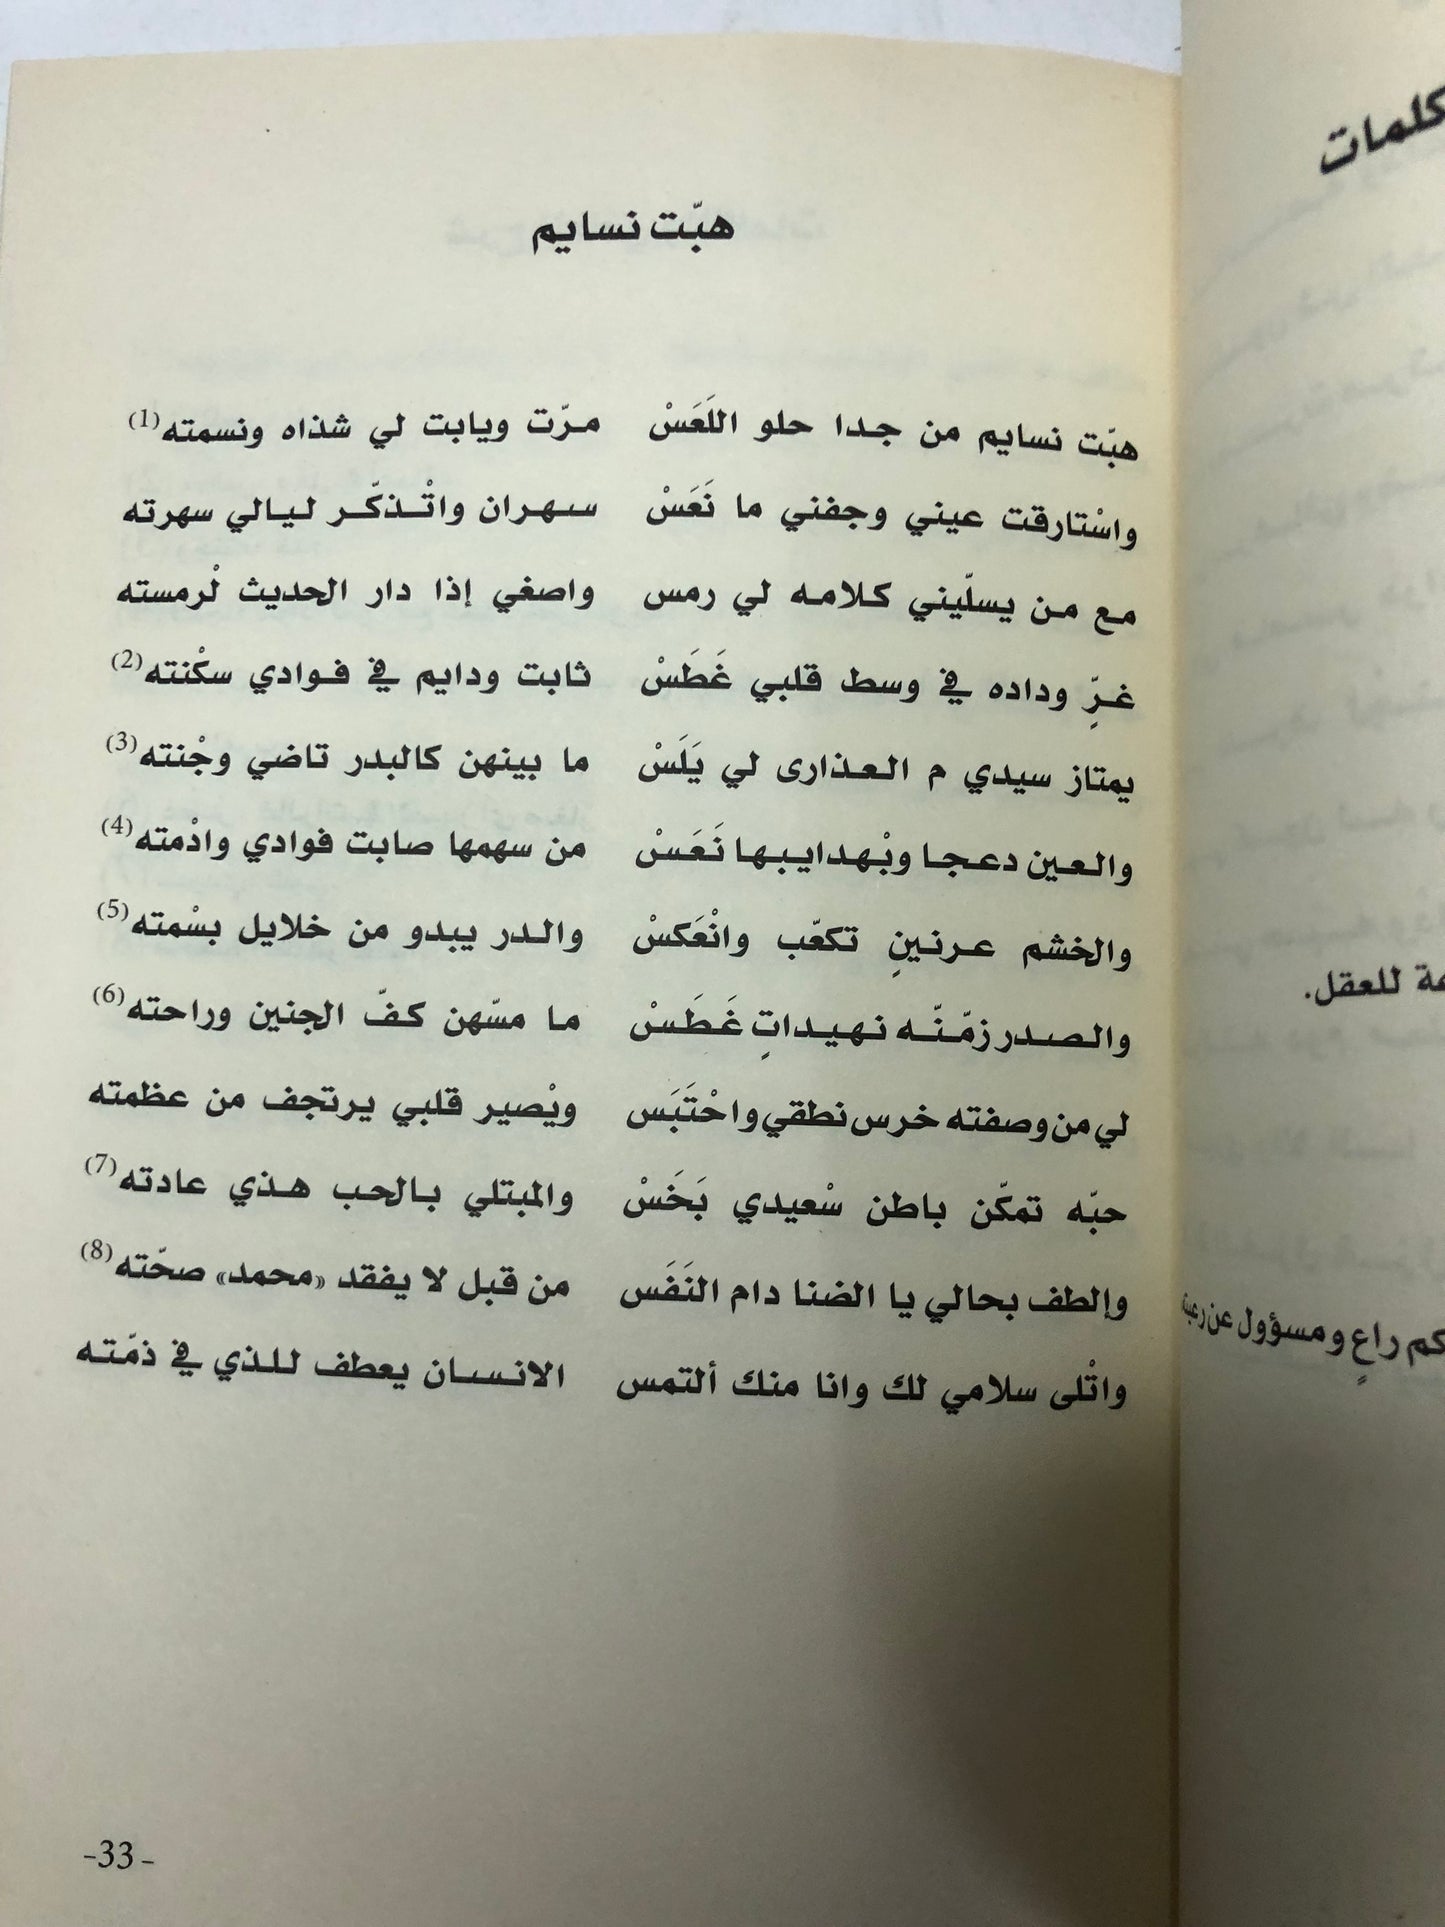 هبّت نسايم
هبّت نسايم من جدا حلو اللَعَسْ مرّت ويابت لي شذاه ونسمته(1)
واسْتارقت عيني وجفني ما نَعَسْ سهران واتْذكّر ليالي سهرته
مع من يسلّيني كلامه لي رمس واصغي إذا دار الحديث لْرمسته
غرِّ وداده في وسط قلبي غَطَسْ ثابت ودايم في فوادي سكْنته(2)
يمتاز سيدي م العذارى لي يَلَسْ ما بينهن كالبدر تاضي وجْنته(3)
والعين دعجا وبْهدايبها نَعَسْ من سهمها صابت فوادي وادْمته(4)
والخشم عرنينِ تكعّب وانْعَكسْ والدر يبدو من خلايل بسْمته(5)
والصدر زمّنّه نهيداتِ غَطَسْ ما مسّهن كفّ الجنين وراحته(6)
لي من وصفته خرس نطقي واحْتَبَس ويْصير قلبي يرتجف من عظمته
حبّه تمكّن باطن سْعيدي بَخَسْ والمبتلي بالحب هذي عادته(7)
وإلطف بحالي يا الضنا دام النَفَس من قبل لا يفقد «محمد» صحّته(8)
واتْلى سلامي لك وانا منك ألتمس الانسان يعطف للذي في ذمّته
-33-
كلمات
للعقل.
كم راعٍ ومسؤول عن